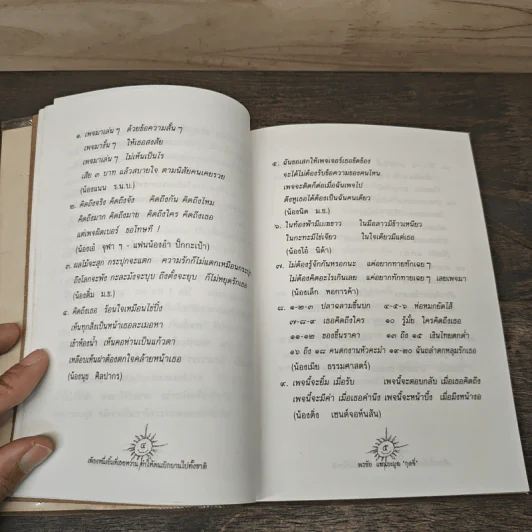 ๑. เพจมาเล่น ๆ ด้วยข้อความสั้น ๆ
เพจมาสั้น ๆ ให้เธอสงสัย
เพจมาเล่น ๆ ไม่เห็นเป็นไร
เสีย ๓ บาท แล้วสบายใจ ตามนิสัยคนเคยรวย
(น้องแนน ร.น.บ.)
๒. คิดถึงจริง คิดถึงจัง คิดถึงกัน คิดถึงไหม
คิดถึงมาก คิดถึงมาย คิดถึงใคร คิดถึงเธอ
แต่เพจผิดเบอร์ ขอโทษที !
(น้องเอ้ จุฬา ฯ - แฟนน้องอ้ำ ปิ๊กกะเป้า)
๓. ผลไม้จะสุก กระปุกจะแตก ความรักก็ไม่แตกเหมือนกระปุก
ถึงโลกจะพัง กะละมังจะยุบ ถึงตั๋งจะยุบ ก็ไม่หยุดรักเธอ
(น้องติ๋ม ม.ธ.)
๔. คิดถึงเธอ ร้อนใจเหมือนไข่ปิ้ง
เห็นทุกสิ่งเป็นหน้าเธอละเมอหา
เข้าห้องน้ำ เห็นคอห่านเป็นแก้วตา
เหลือบเห็นฝาต้องตกใจคล้ายหน้าเธอ
(น้องนุช ศิลปากร)
๔
เพียงหนึ่งยิ้มที่เธอหว่าน ทำให้คนเบิกบานไปทั้งชาติ
๕. ฉันขอเสกให้เพจเจอร์เธอขัดข้อง
จะได้ไม่ต้องรับข้อความของคนไหน
เพจจะติดก็ต่อเมื่อฉันเพจไป
ดังหูเธอได้ต้องเป็นฉันคนเดียว
(น้องนิด ม.ธ.)
๖. ในท้องฟ้ามีเมฆขาว ในมือสาวมีข้าวเหนียว
ในกะทะมีไข่เจียว ในใจเดียวมีแต่เธอ
(น้องโอ๋ นิด้า)
๗. ไม่ต้องรู้จักกันหรอกนะ แค่อยากทายทักเฉย ๆ
ไม่ต้องคิดอะไรเกินเลย แค่อยากทักทายเฉย ๆ เลยเพจมา
(น้องเล็ก หอการค้า)
๘. ๑-๒-๓ ปลาฉลามขึ้นบก ๔-๕-๖ ท่อหมกยัดไส้
๗-๘-๙ เธอคิดถึงใคร ๑๐ รู้มั้ย ใครคิดถึงเธอ
๑๑-๑๒ ของขึ้นราคา ๑๓ ถึง ๑๕ เงินไทยตกต่ำ
๑๖ ถึง ๑๘ คนตกงานหัวคะมำ ๑๙-๒๐ ฉันถลำตกหลุมรักเธอ
(น้องเมีย ธรรมศาสตร์)
๙. เพจนี้จะยิ้ม เมื่อรับ เพจนี้จะตอบกลับ เมื่อเธอคิดถึง
เพจนี้จะมีค่า เมื่อเธอคำนึง เพจนี้จะหน้าบึ้ง เมื่อมึงหน้างอ
(น้องติ่ง เซนต์จอห์นสัน)
๕